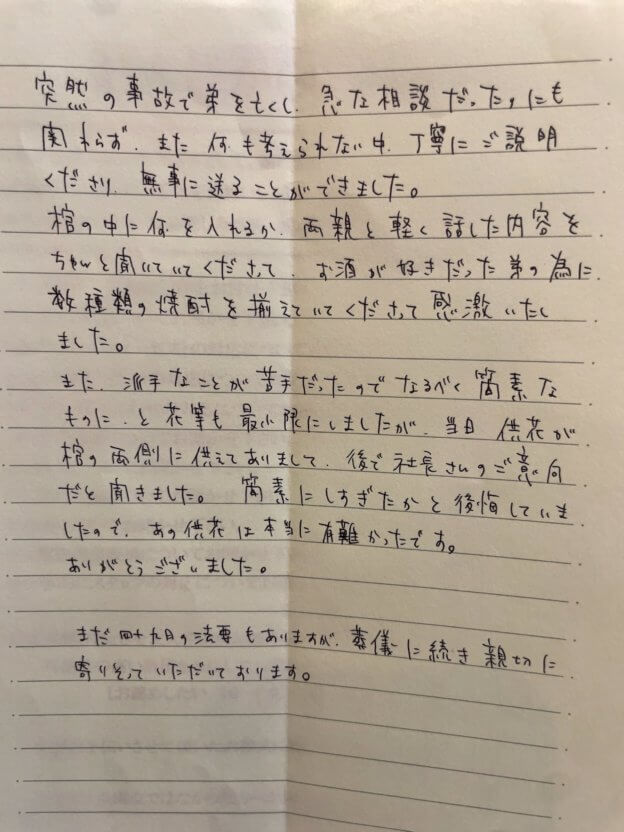 突然の事故で弟を亡くし、急な相談だったにも
関わらず、また何も考えられない中、丁寧にご説明
くださり、無事に送ることができました。
棺の中に何を入れるか、両親と軽く話した内容を
ちゃんと聞いていてくださって、お酒が好きだった弟の為に
数種類の焼酎を揃えていてくださって感激いたし
ました。
また、派手なことが苦手だったのでなるべく簡素な
ものに、と花等も最小限にしましたが、当日供花が
棺の両側に供えてありまして、後で社長さんのご意向
だと聞きました。簡素にしすぎたかと後悔していま
したので、あの供花は本当に有難かったです。
ありがとうございました。
まだ四十九日の法要もありますが、葬儀に続き親切に
寄りそっていただいております。